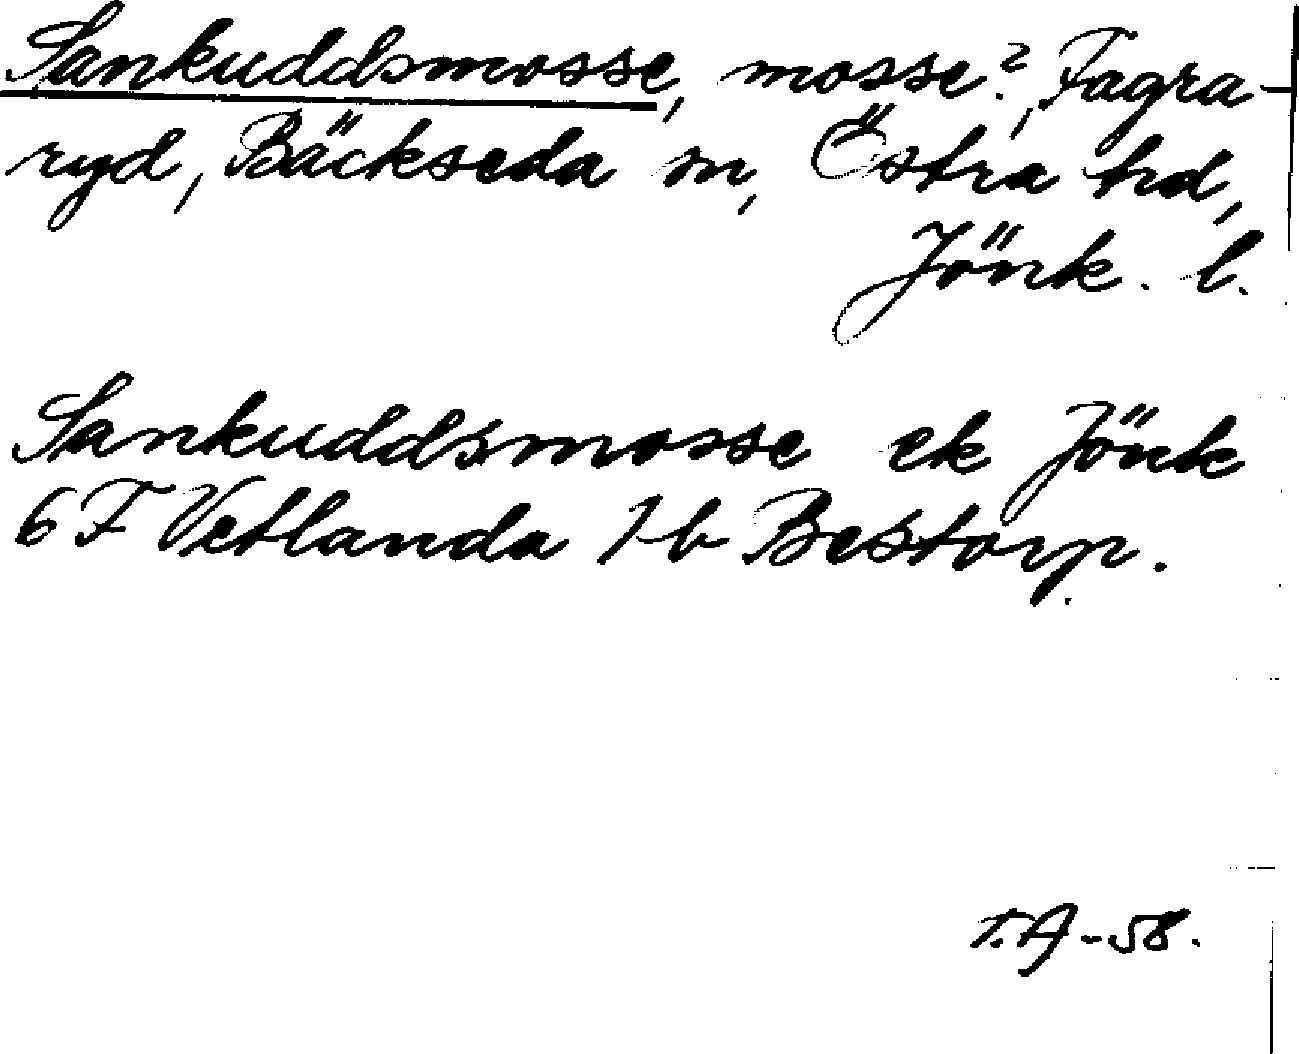 Sankuddsmosse, mosse?, Fagra-
ryd, Bäckseda sn, Östra hd,
Jönk. l.
Sankuddsmosse ek Jönk
6 F Vetlanda 1 b Bestorp.
T.A-58.